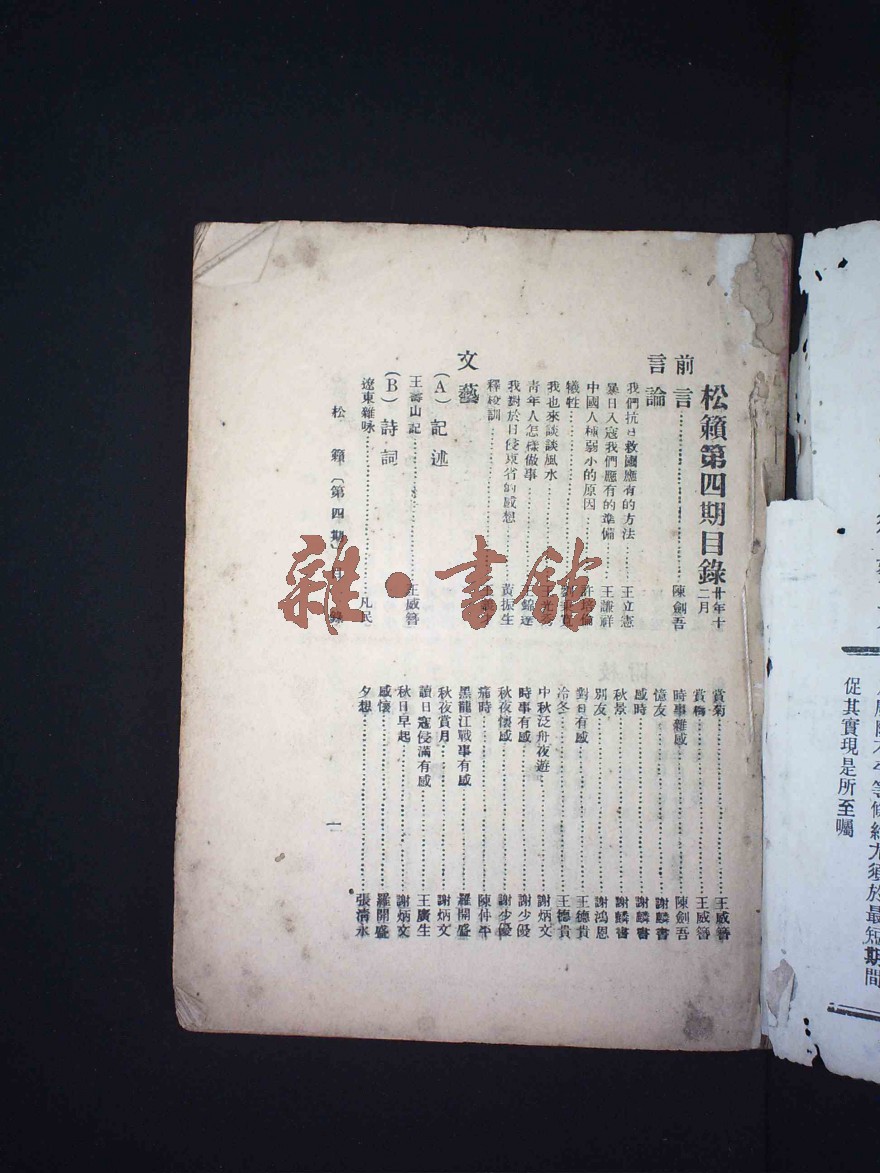 松籟第四期目錄 廿年十二月
前言……陳劍吾
言論
我們抗日救國應有的方法……王立憲
暴日入寇我們應有的準備……王謙祥
中國人種弱小的原因……許培倫
犧牲……
我也來談談風水……
靑年人怎樣做事……王錦達
我對於日侵東省的感想……黃振生
釋校訓……
文藝
(A)記述
王壽山記……王威簪
(B)詩詞
遼東雜咏……凡民
賞菊……王威簪
賞梅……王威簪
時事雜感……陳劍吾
憶友……謝麟書
感時……謝麟書
秋景……謝麟書
別友……謝鴻恩
對日有感……王德貴
冷冬……王德貴
中秋泛舟夜遊……謝炳文
時事有感……謝少優
秋夜懷感……謝少優
痛時……陳仲平
黑龍江戰事有感……羅開盛
秋夜賞月……謝炳文
讀日寇侵滿有感……王廣生
秋日早起……謝炳文
感懷……羅開盛
夕想……張清永
松籟〔第四期〕目錄
一
雜·書館
促其實現是所至囑